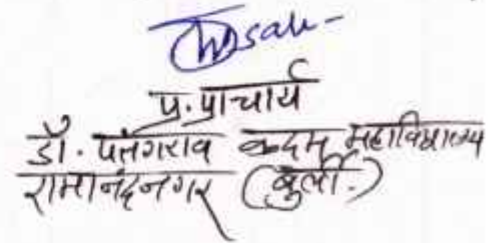 प्र. प्राचार्य
डॉ. पतंगराव कदम महाविद्यालय
रामानंदनगर (बुर्ली.)